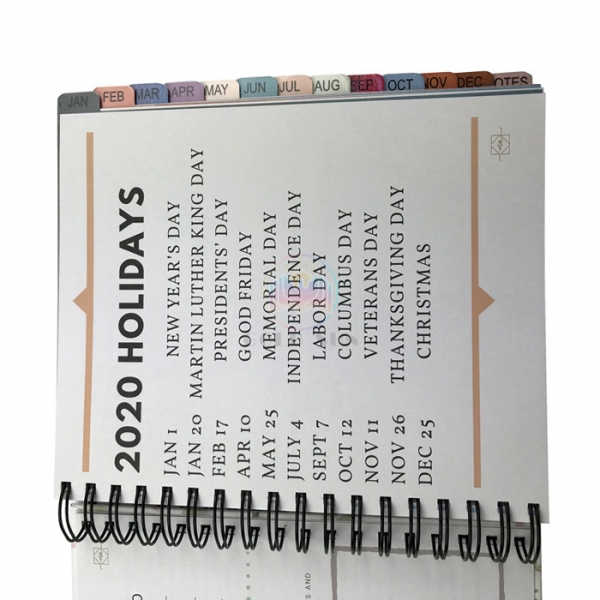 JAN
FEB
MAR
APR
MAY
JUN
JUL
AUG
SEP
OCT
NOV
DEC
NOTES
2020 HOLIDAYS
JAN 1 NEW YEAR'S DAY
JAN 20 MARTIN LUTHER KING DAY
FEB 17 PRESIDENTS' DAY
APR 10 GOOD FRIDAY
MAY 25 MEMORIAL DAY
JULY 4 INDEPENDENCE DAY
SEPT 7 LABOR DAY
OCT 12 COLUMBUS DAY
NOV 11 VETERANS DAY
NOV 26 THANKSGIVING DAY
DEC 25 CHRISTMAS
S AND